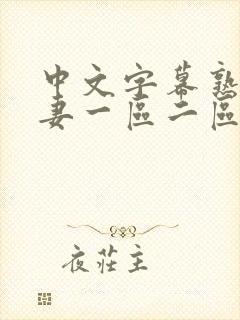 中文字幕熟
妻一區二區
夜莊主